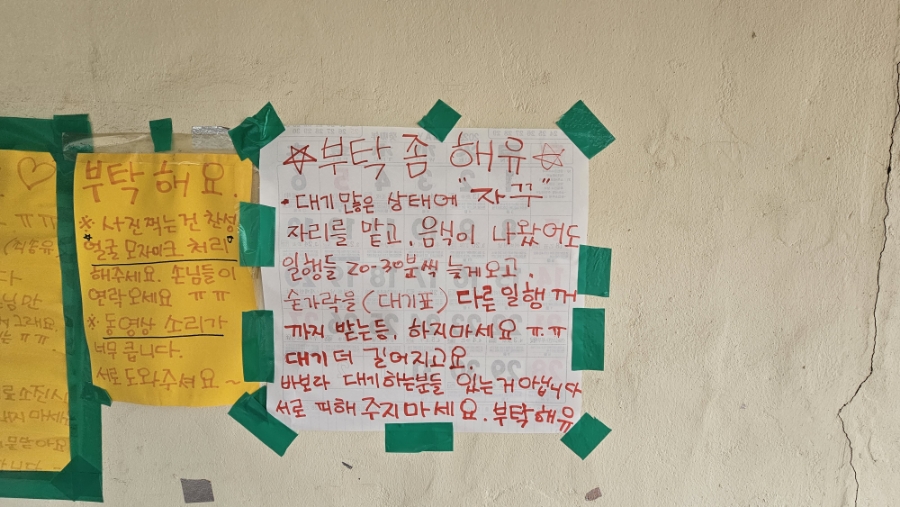 ㅠㅠ
부탁해요.
※ 사진찍는건 찬성
얼굴 모자이크 처리
해주세요. 손님들이
연락오세요 ㅠㅠ
※ 동영상 소리가
너무 큽니다.
서로 도와주셔요~
☆부탁 좀 해유☆
• 대기 많은 상태에 "자꾸"
자리를 맡고, 음식이 나왔어도
일행들 20-30분씩 늦게오고,
숟가락을 (대기표) 다른일행 꺼
까지 받는등, 하지마세요 ㅠㅠ
대기 더 길어지고요.
바보라 대기하는분들 있는거아닙니다
서로 피해 주지마세요. 부탁해유